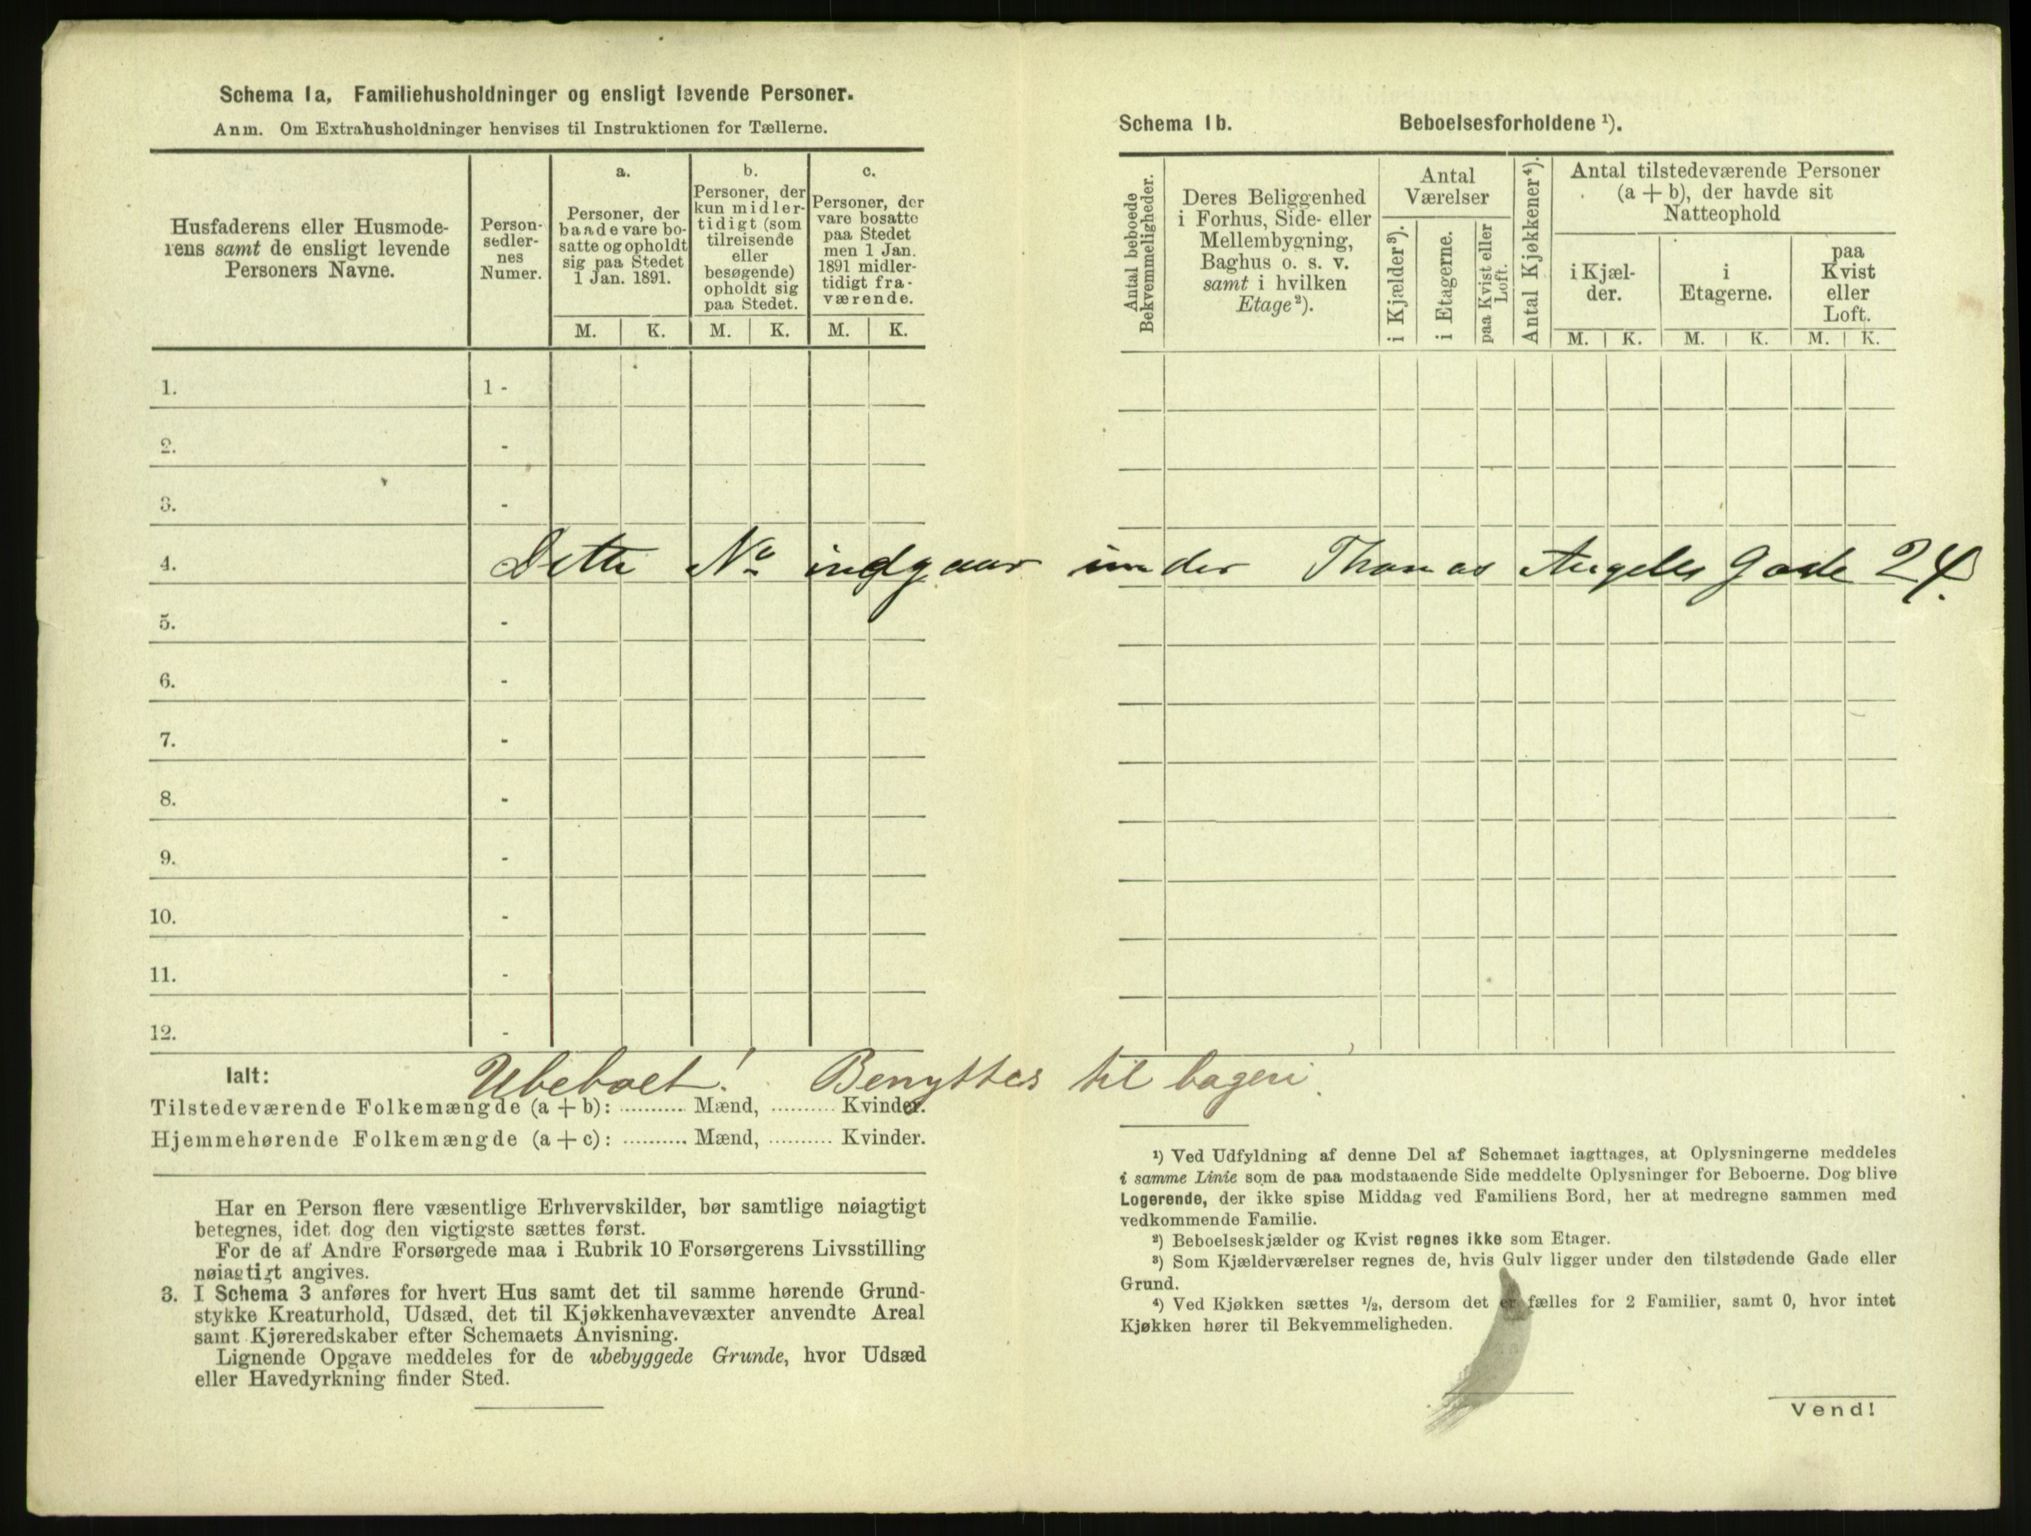 Schema 1a, Familiehusholdninger og ensligt levende Personer.
Anm. Om Extrahusholdninger henvises til Instruktionen for Tællerne.
Husfaderens eller Husmode-
rens samt de ensligt levende
Personers Navne.
Person-
sedler-
nes
Numer.
a.
Personer, der
baade vare bo-
satte og opholdt
sig paa Stedet
1 Jan. 1891.
M. K.
b.
Personer, der
kun midler-
tidigt (som
tilreisende
eller
besøgende)
opholdt sig
paa Stedet.
M. K.
c.
Personer, der
vare bosatte
paa Stedet
men 1 Jan.
1891 midler-
tidigt fra-
værende.
M. K.
1. 1 -
2. -
3. -
4. Dette No indgaar under Thomas Angels Gade 24.
5. -
6. -
7. -
8. -
9. -
10. -
11. -
12. -
Ialt: Ubeboet! Benyttes til bageri
Tilstedeværende Folkemængde (a + b): .......... Mænd, .......... Kvinder.
Hjemmehørende Folkemængde (a + c): .......... Mænd, .......... Kvinder.
Har en Person flere væsentlige Erhvervskilder, bør samtlige nøiagtigt
betegnes, idet dog den vigtigste sættes først.
For de af Andre Forsørgede maa i Rubrik 10 Forsørgerens Livsstilling
nøiagtigt angives.
3. I Schema 3 anføres for hvert Hus samt det til samme hørende Grund-
stykke Kreaturhold, Udsæd, det til Kjøkkenhavevæxter anvendte Areal
samt Kjøreredskaber efter Schemaets Anvisning.
Lignende Opgave meddeles for de ubebyggede Grunde, hvor Udsæd
eller Havedyrkning finder Sted.
Schema 1b. Beboelsesforholdene ¹).
Antal beboede
Bekvemmeligheder.
Deres Beliggenhed
i Forhus, Side- eller
Mellembygning,
Baghus o. s. v.
samt i hvilken
Etage²).
Antal
Værelser
i Kjælder³).
i Etagerne.
paa Kvist eller
Loft.
Antal Kjøkkener⁴).
Antal tilstedeværende Personer
(a + b), der havde sit
Natteophold
i Kjæl-
der.
i
Etagerne.
paa
Kvist
eller
Loft.
M. K. M. K. M. K.
¹) Ved Udfyldning af denne Del af Schemaet iagttages, at Oplysningerne meddeles
i samme Linie som de paa modstaaende Side meddelte Oplysninger for Beboerne. Dog blive
Logerende, der ikke spise Middag ved Familiens Bord, her at medregne sammen med
vedkommende Familie.
²) Beboelseskjælder og Kvist regnes ikke som Etager.
³) Som Kjælderværelser regnes de, hvis Gulv ligger under den tilstødende Gade eller
Grund.
⁴) Ved Kjøkken sættes ½, dersom det er fælles for 2 Familier, samt 0, hvor intet
Kjøkken hører til Bekvemmeligheden.
Vend!